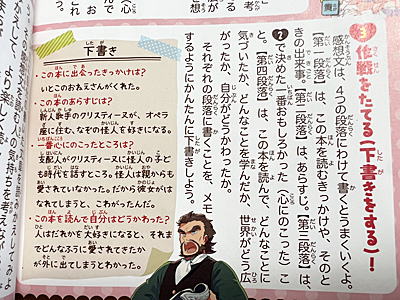 ❸ 作戦をたてる(下書きをする)!
感想文は、4つの段落にわけて書くとうまくいくよ。
【第一段落】は、この本を読むきっかけや、そのと
きの出来事。【第二段落】は、あらすじ。【第三段落】は、
❷で決めた一番おもしろかった(心にのこった)こ
と。【第四段落】は、この本を読んで、どんなことに
気づいたか、どんなことを学んだか、世界がどう広
がったか、自分がどうかわったか。
それぞれの段落に書くことを、メモ
するようにかんたんに下書きしよう。
下書き
・この本に出会ったきっかけは?
いとこのおねえさんがくれた。
・この本のあらすじは?
新人歌手のクリスティーヌが、オペラ
座に住む、なぞの怪人を好きになる。
・一番心にのこったところは?
支配人がクリスティーヌに怪人の子ど
も時代を話すところ。怪人は親からも
愛されていなかった。だから彼女がは
なれてしまうと、こわかったんだ。
・この本を読んで自分はどうかわった?
人はだれかを大好きになると、それま
でどんなふうに愛されてきたか
が外に出てしまうとわかった。